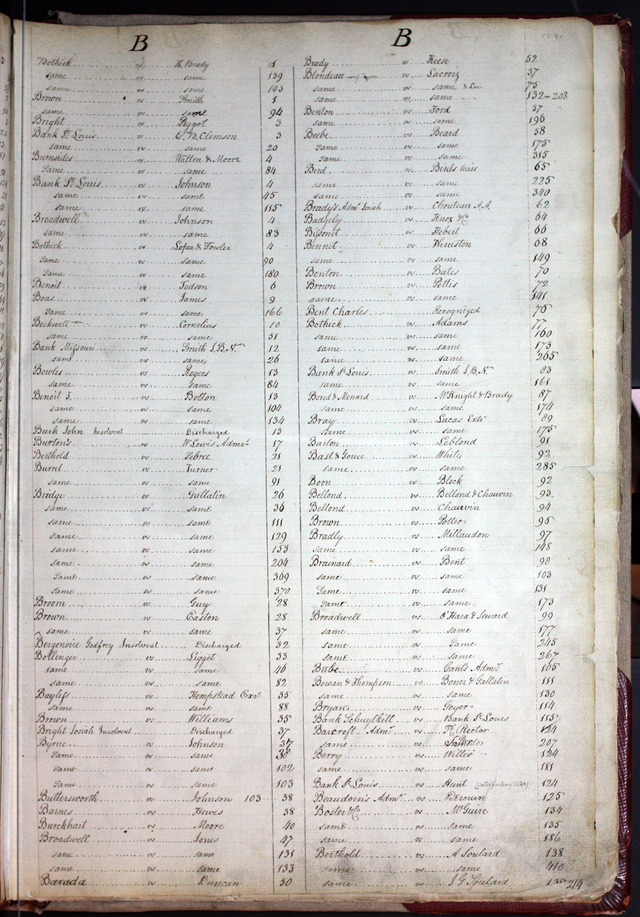 B
Bothick vs Th Brady
same vs same 139
same vs same 143
Brown vs Smith 1
same vs same 94
Bright vs Piggot 3
Bank St Louis vs E. B. Clemson 3
same vs same 20
Burnsides vs Walton & Moore 4
same vs same 84
Bank St Louis vs Johnson 4
same vs same 45
same vs same 115
Broadwell vs Johnson 4
same vs same 83
Bothick vs Loper & Fowler 4
same vs same 90
same vs same 180
Benoit vs Todson 6
Boas vs James 9
same vs same 166
Beckwell vs Cornelius 10
same vs same 31
Bank Missouri vs Smith J. B. N. 12
same vs same 26
Bowles vs Rogers 13
same vs same 84
Benoit J. vs Bolton 13
same vs same 104
same vs same 134
Burk John Insolvent Discharged 13
Burton's vs W Lewis Admr 17
Berthold vs Febree 21
Burrel vs Turner 21
same vs same 91
Bridge vs Gallatin 26
same vs same 36
same vs same 111
same vs same 129
same vs same 153
same vs same 204
same vs same 369
same vs same 370
Broom vs Guy 28
Brown vs Easton 28
same vs same 37
Bergenoire Godfrey Insolvent Discharged 32
Bollinger vs Ligget 33
same vs same 46
same vs same 82
Bayless vs Hempstead Exr 35
same vs same 88
Brown vs Williams 35
Bright Josiah Insolvent Discharged 37
Byrne vs Johnson 37
same vs same
same vs same 102
same vs same 103
Buttersworth vs Johnson 103 38
Baines vs Hewes 38
Burckhart vs Moore 40
Broadwell vs Jones 47
same vs same 131
same vs same 133
Barada vs Duncan 50
B
Brady vs Reese 52
Blondeau vs Lacroix 57
same vs same & Lee 75
same vs same 132-208
Benton vs Ford 57
same vs same 196
Beebe vs Beard 58
same vs same 175
same vs same 315
Bird vs Birds heirs 65
same vs same 225
same vs same 340
Brady's Admr Josiah vs Chouteau A.P. 62
Badgely vs Knox & Co 64
Bissonet vs Hebert 66
Bennet vs Wheriston 68
same vs same 149
Benton vs Bates 70
Brown vs Pettis 72
same vs same 141
Bent Charles Recognized 76
Bothick vs Adams 77
same vs same 160
same vs same 173
same vs same 265
Bank St Louis vs Smith J. B. N. 83
same vs same 161
Bond & Menard vs McKnight & Brady 87
same vs same 174
Bray vs Lucas Extr 89
same vs same 175
Barton vs Leblond 91
Bast & Gouce vs White 92
same vs same 285
Boon vs Block 92
Bellond vs Bellond & Chauvin 93
Bellond vs Chauvin 94
Brown vs Potter 96
Bradly vs Millaudon 97
same vs same 148
Brainard vs Bent 98
same vs same 103
same vs same 131
same vs same 173
Broadwell vs O'Hara & Seward 99
same vs same 177
same vs same 245
same vs same 267
Bribe vs Gants Admr 105
Bowan & Thompson vs Boner & Gallatin 111
same vs same 130
Bryan's vs Geyer 114
Bank Schuylkill vs Bank St Louis 115
Barcroft Admr vs Rector 124
same vs 207
Berry vs Willis 124
same vs same 181
Bank St Louis vs Hunt 124
Beaudoin's Admr vs 125
Boster & Co vs McGuire 134
same vs same 135
same vs same 186
Berthold vs A Soulard 138
same vs same 410
same vs J G Soulard 214